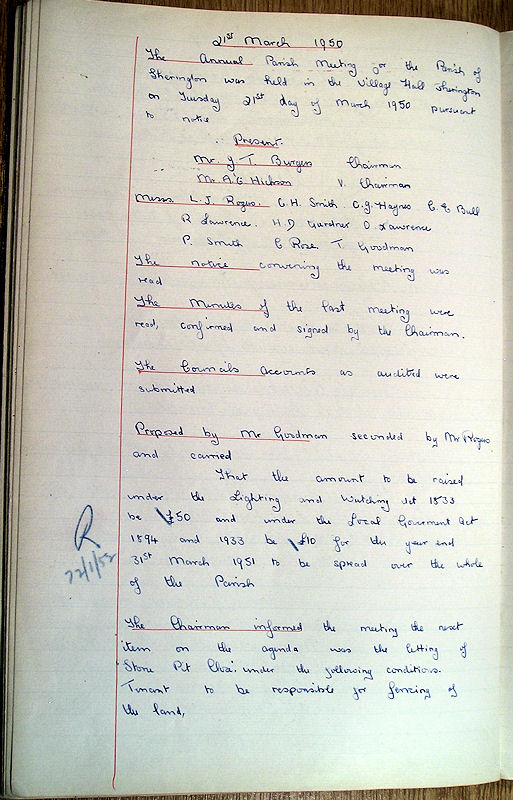 21st March 1950
The Annual Parish Meeting for the Parish of
Sherington was held in the Village Hall Sherington
on Tuesday 21st day of March 1950 pursuant
to notice
Present.
Mr. J. T. Burgess Chairman
Mr A.E Hickson V. Chairman
Messrs. L. J. Rogers. C. H. Smith. C. J. Haynes C. E Bull
R Lawrence. H. D Gardner O. Lawrence
P. Smith C Rose. T. Goodman
The notice convening the meeting was
read
The Minutes of the last meeting were
read, confirmed and signed by the Chairman.
The Councils accounts as audited were
submitted
Proposed by Mr Goodman seconded by Mr Rogers
and carried
That the amount to be raised
under the Lighting and Watching Act 1833
be £50 and under the Local Goverment Act
1894 and 1933 be £10 for the year end
31st March 1951 to be spread over the whole
of the Parish
R
22/1/52
The Chairman informed the meeting the next
item on the agenda was the letting of
Stone Pit Close. under the following conditions.
Tenant to be responsible for fencing of
the land,